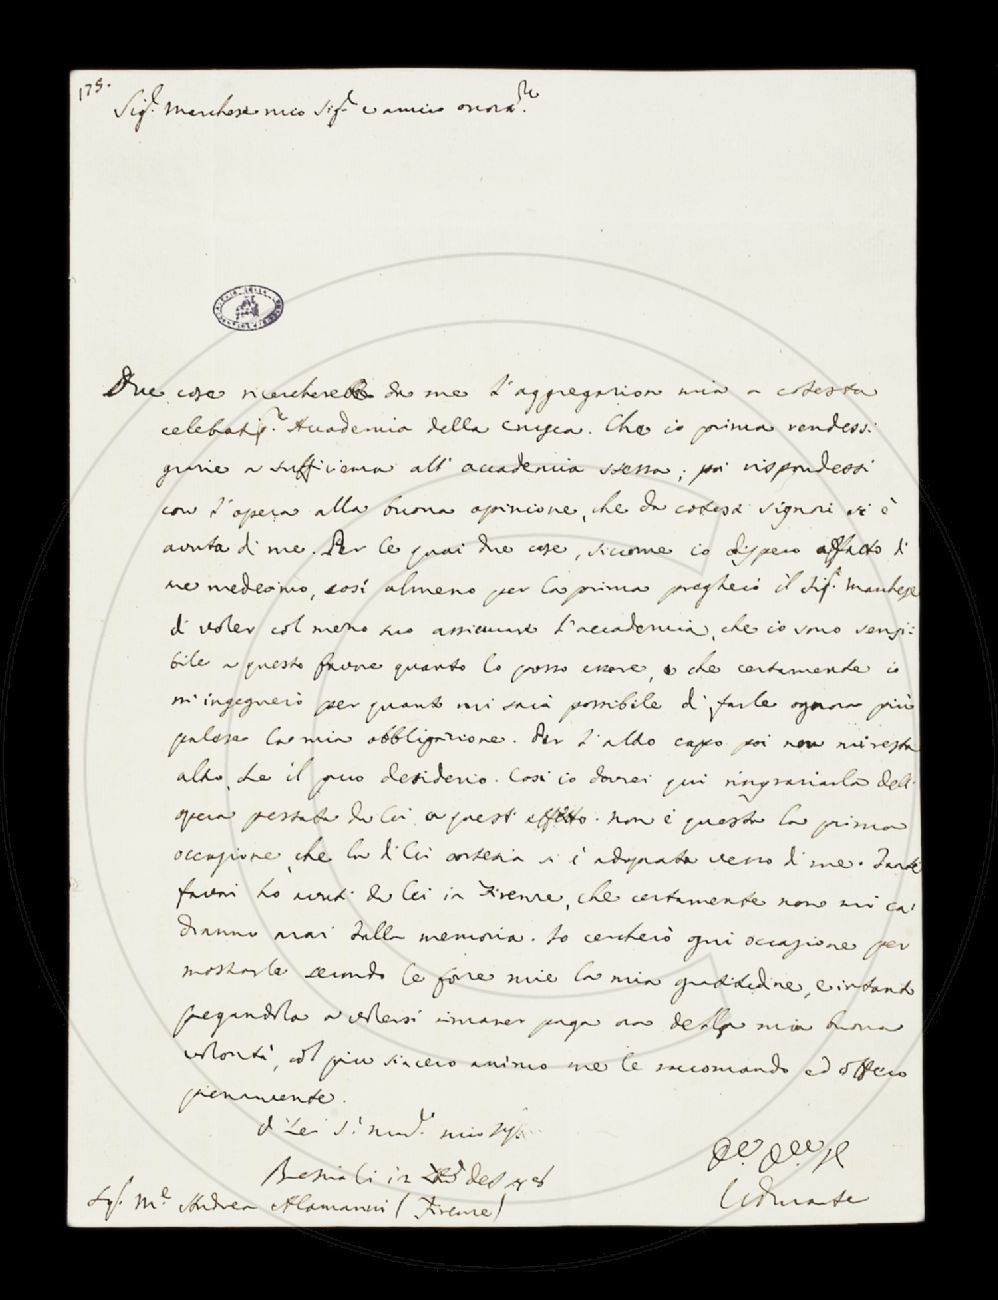 175.
Sig.r Marchese mio Sig.r e amico onora.mo
Due cose ricercherebbe da me l'aggregazion mia a cotesta
celebatis.a Accademia della Crusca. Che io prima rendessi
grazie a sufficienza all' accademia stessa; poi rispondessi
con l'opera alla buona opinione, che da cotesti signori si è
avuta di me. Per le quai due cose, siccome io dispero affatto di
me medesimo, così almeno per la prima pregherò il Sig.r Marchese
di voler col mezzo suo assicurare l'accademia, che io sono sensi:
bile a questo favore quanto lo posso essere, e che certamente io
m'ingegnerò per quanto mi sarà possibile di farle ognora più
palese la mia obbligazione. Per l'altro capo poi non mi resta
altro che il puro desiderio. Così io dovrei qui ringraziarla dell'
opera prestata da Lei a questo effetto. non è questa la prima
occasione, che la di lei cortesia si è adoprata verso di me. Tanti
favori ho avuti da Lei in Firenze, che certamente non mi ca:
dranno mai dalla memoria. Io cercherò ogni occasione per
mostrarle secondo le forze mie la mia gratitudine, e intanto
pregandola a volersi rimaner paga ora della mia buona
volontà, col più sincero animo me le raccomando ed offero
pienamente.
di Lei S.r mio
Sig.r M.e Andrea Alamanni (Firenze)